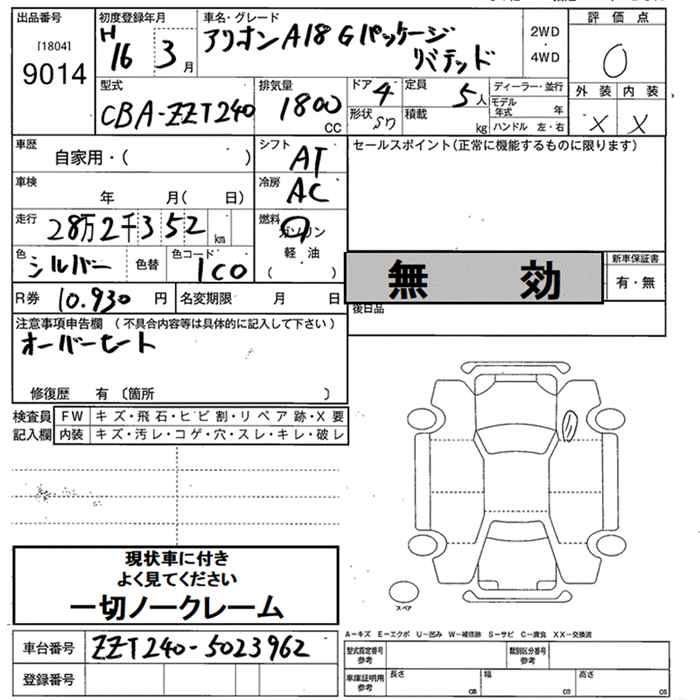 出品番号
[1804]
9014
初度登録年月
H
16 3 月
車名・グレード
アリオン A18 Gパッケージ
リミテッド
2WD
・
4WD
評価点
0
外装 内装
X X
型式
CBA-ZZT240
排気量
1800
CC
ドア
4
形状
定員
5人
積載
kg
ディーラー・並行
モデル年式 年
ハンドル 左・右
車歴
自家用・( )
シフト
AT
セールスポイント(正常に機能するものに限ります)
車検
年 月( 日)
冷房
AC
走行
28万2千352 km
燃料
ガソリン
軽油
( )
色
シルバー
色替
色コード
1C0
無 効
新車保証書
有・無
R券 10.930 円
名変期限 月 日
後日品
注意事項申告欄 (不具合内容等は具体的に記入して下さい)
オーバーヒート
修復歴 有 〔箇所 〕
検査員
記入欄
FW キズ・飛石・ヒビ割・リペア跡・X要
内装 キズ・汚レ・コゲ・穴・スレ・キレ・破レ
現状車に付き
よく見てください
一切ノークレーム
スペア
車台番号 ZZT240-5023962
登録番号
A−キズ E−エクボ U−凹み W−補修跡 S−サビ C−腐食 XX−交換済
型式指定番号
参考
類別区分番号
参考
車庫証明用
参考
長さ cm
幅 cm
高さ cm